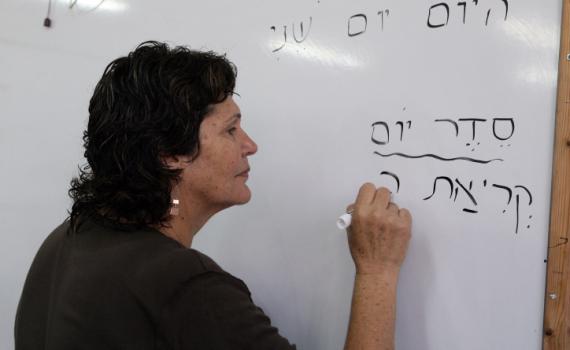 היום יום שֵׁנִי
סֵדֶר יוֹם
קְרִיאַת